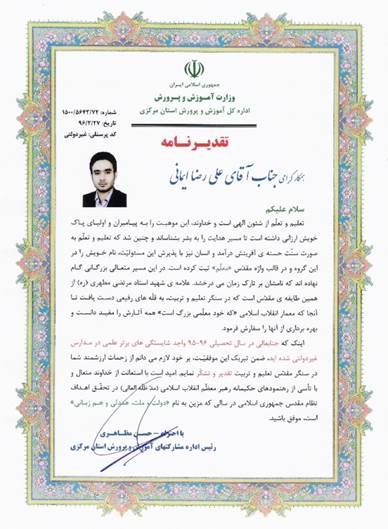 جمهوری اسلامی ایران
وزارت آموزش و پرورش
اداره کل آموزش و پرورش استان مرکزی
شماره: ۱۵۰۰/۵۶۴۳/۷۲
تاریخ: ۹۶/۲/۲۷
کد پرسنلی: غیردولتی
تقدیرنامه
همکار گرامی جناب آقای علی رضا ایمانی
سلام علیکم
تعلیم و تعلّم از شئون الهی است و خداوند، این موهبت را به پیامبران و اولیای پاک
خویش ارزانی داشته است تا مسیر هدایت را به بشر بشناساند و چنین شد که تعلیم و تعلّم به
صورت سنّت حسنه ی آفرینش درآمد و انسان نیز با پذیرش این مسئولیّت، نام خویش را در
این گروه و در قالب واژه مقدّس «معلّم» ثبت کرده است. در این مسیر متعالی بزرگانی گام
نهاده اند که نامشان بر تارک زمان می درخشد. علامه ی شهید استاد مرتضی مطهری (ره) از
همین طایفه ی مقدّس است که در سنگر تعلیم و تربیت، به قلّه های رفیعی دست یافت تا
آنجا که معمار انقلاب اسلامی «که خود معلّمی بزرگ است» همه آثارش را مفید دانست و
بهره برداری از آنها را سفارش فرمود.
اینک که جنابعالی در سال تحصیلی ۹۶-۹۵ واجد شایستگی های برتر علمی در مدارس
غیردولتی شده اید، ضمن تبریک این موفقیّت، بر خود لازم می دانم از زحمات ارزشمند شما
در سنگر مقدّس تعلیم و تربیت تقدیر و تشکّر نمایم. امید است با استعانت از خداوند متعال و
با تأسی از رهنمودهای حکیمانه رهبر معظّم انقلاب اسلامی (مد ظلّه العالی) در تحقّق اهداف
نظام مقدّس جمهوری اسلامی در سالی که مزین به نام «دولت و ملت، همدلی و هم زبانی»
است، موفق باشید.
با احترام - حسن مظاهری
رئیس اداره مشارکتهای آموزش و پرورش استان مرکزی